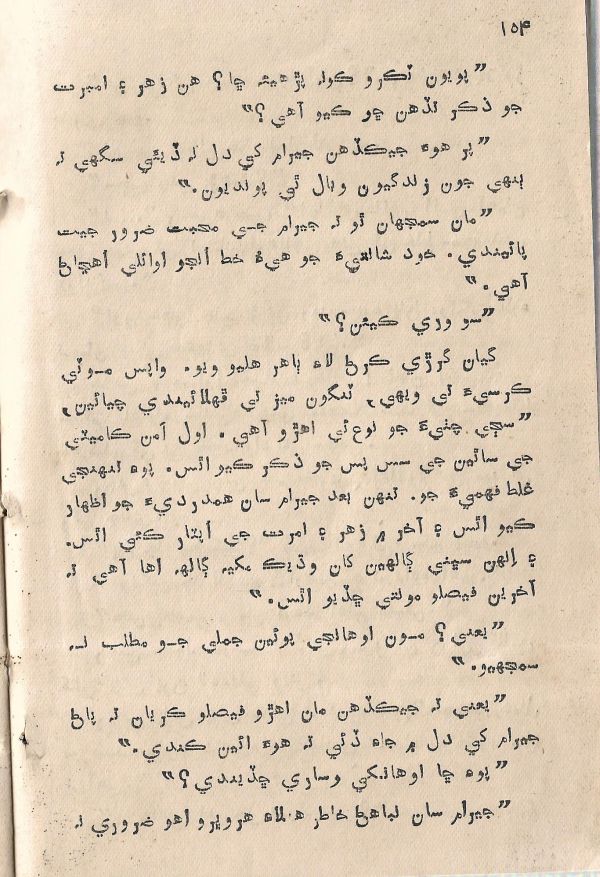 ١٥۴
”پويون ٽڪرو ڪونہ پڙهيئہ ڇا؟ هن زهر ۽ امرت
جو ذڪر ٿڏهن ڇو ڪيو آهي؟“
”پر هوءَ جيڪڏهن جيرام کي دل نہ ڏيئي سگهي تہ
ٻنهي جون زندگيون وبال ٿي پونديون.“
”مان سمجهان ٿو تہ جيرام جي محبت ضرور جيت
پائيندي. خود شالنيءَ جو هيءُ خط انجو اوائلي اهڃاڻ
آهي.“
”سو وري ڪيئن؟“
گيان گرڙي ڪرڻ لاءِ ٻاهر هليو ويو. واپس موٽي
ڪرسيءَ تي ويهي، ٽنگون ميز تي ڦهلائيندي چيائين،
”سڄي چٺيءَ جو نوع ئي اهڙو آهي. اول آمن ڪاميٽي
جي ساٿين جي سس پس جو ذڪر ڪيو اٿس. پوءِ تنهنجي
غلط فهميءَ جو. تنهن بعد جيرام سان همدرديءَ جو اظهار
ڪيو اٿس ۽ آخر ۾ زهر ۽ امرت جي اُپٽار ڪئي اٿس.
۽ انهن سڀني ڳالهين کان وڌيڪ مکيہ ڳالهہ اها آهي تہ
آخرين فيصلو مونتي ڇڏيو اٿس.“
”يعني؟ مون اوهانجي پوئين جملي جو مطلب نہ
سمجهيو.“
”يعني تہ جيڪڏهن مان اهڙو فيصلو ڪريان تہ پاڻ
جيرام کي دل ۾ جاءِ ڏئي تہ هوءَ ائين ڪندي.“
”پوءِ ڇا اوهانکي وساري ڇڏيندي؟“
”جيرام سان نباهڻ خاطر هن لاءِ هروڀرو اهو ضروري نہ